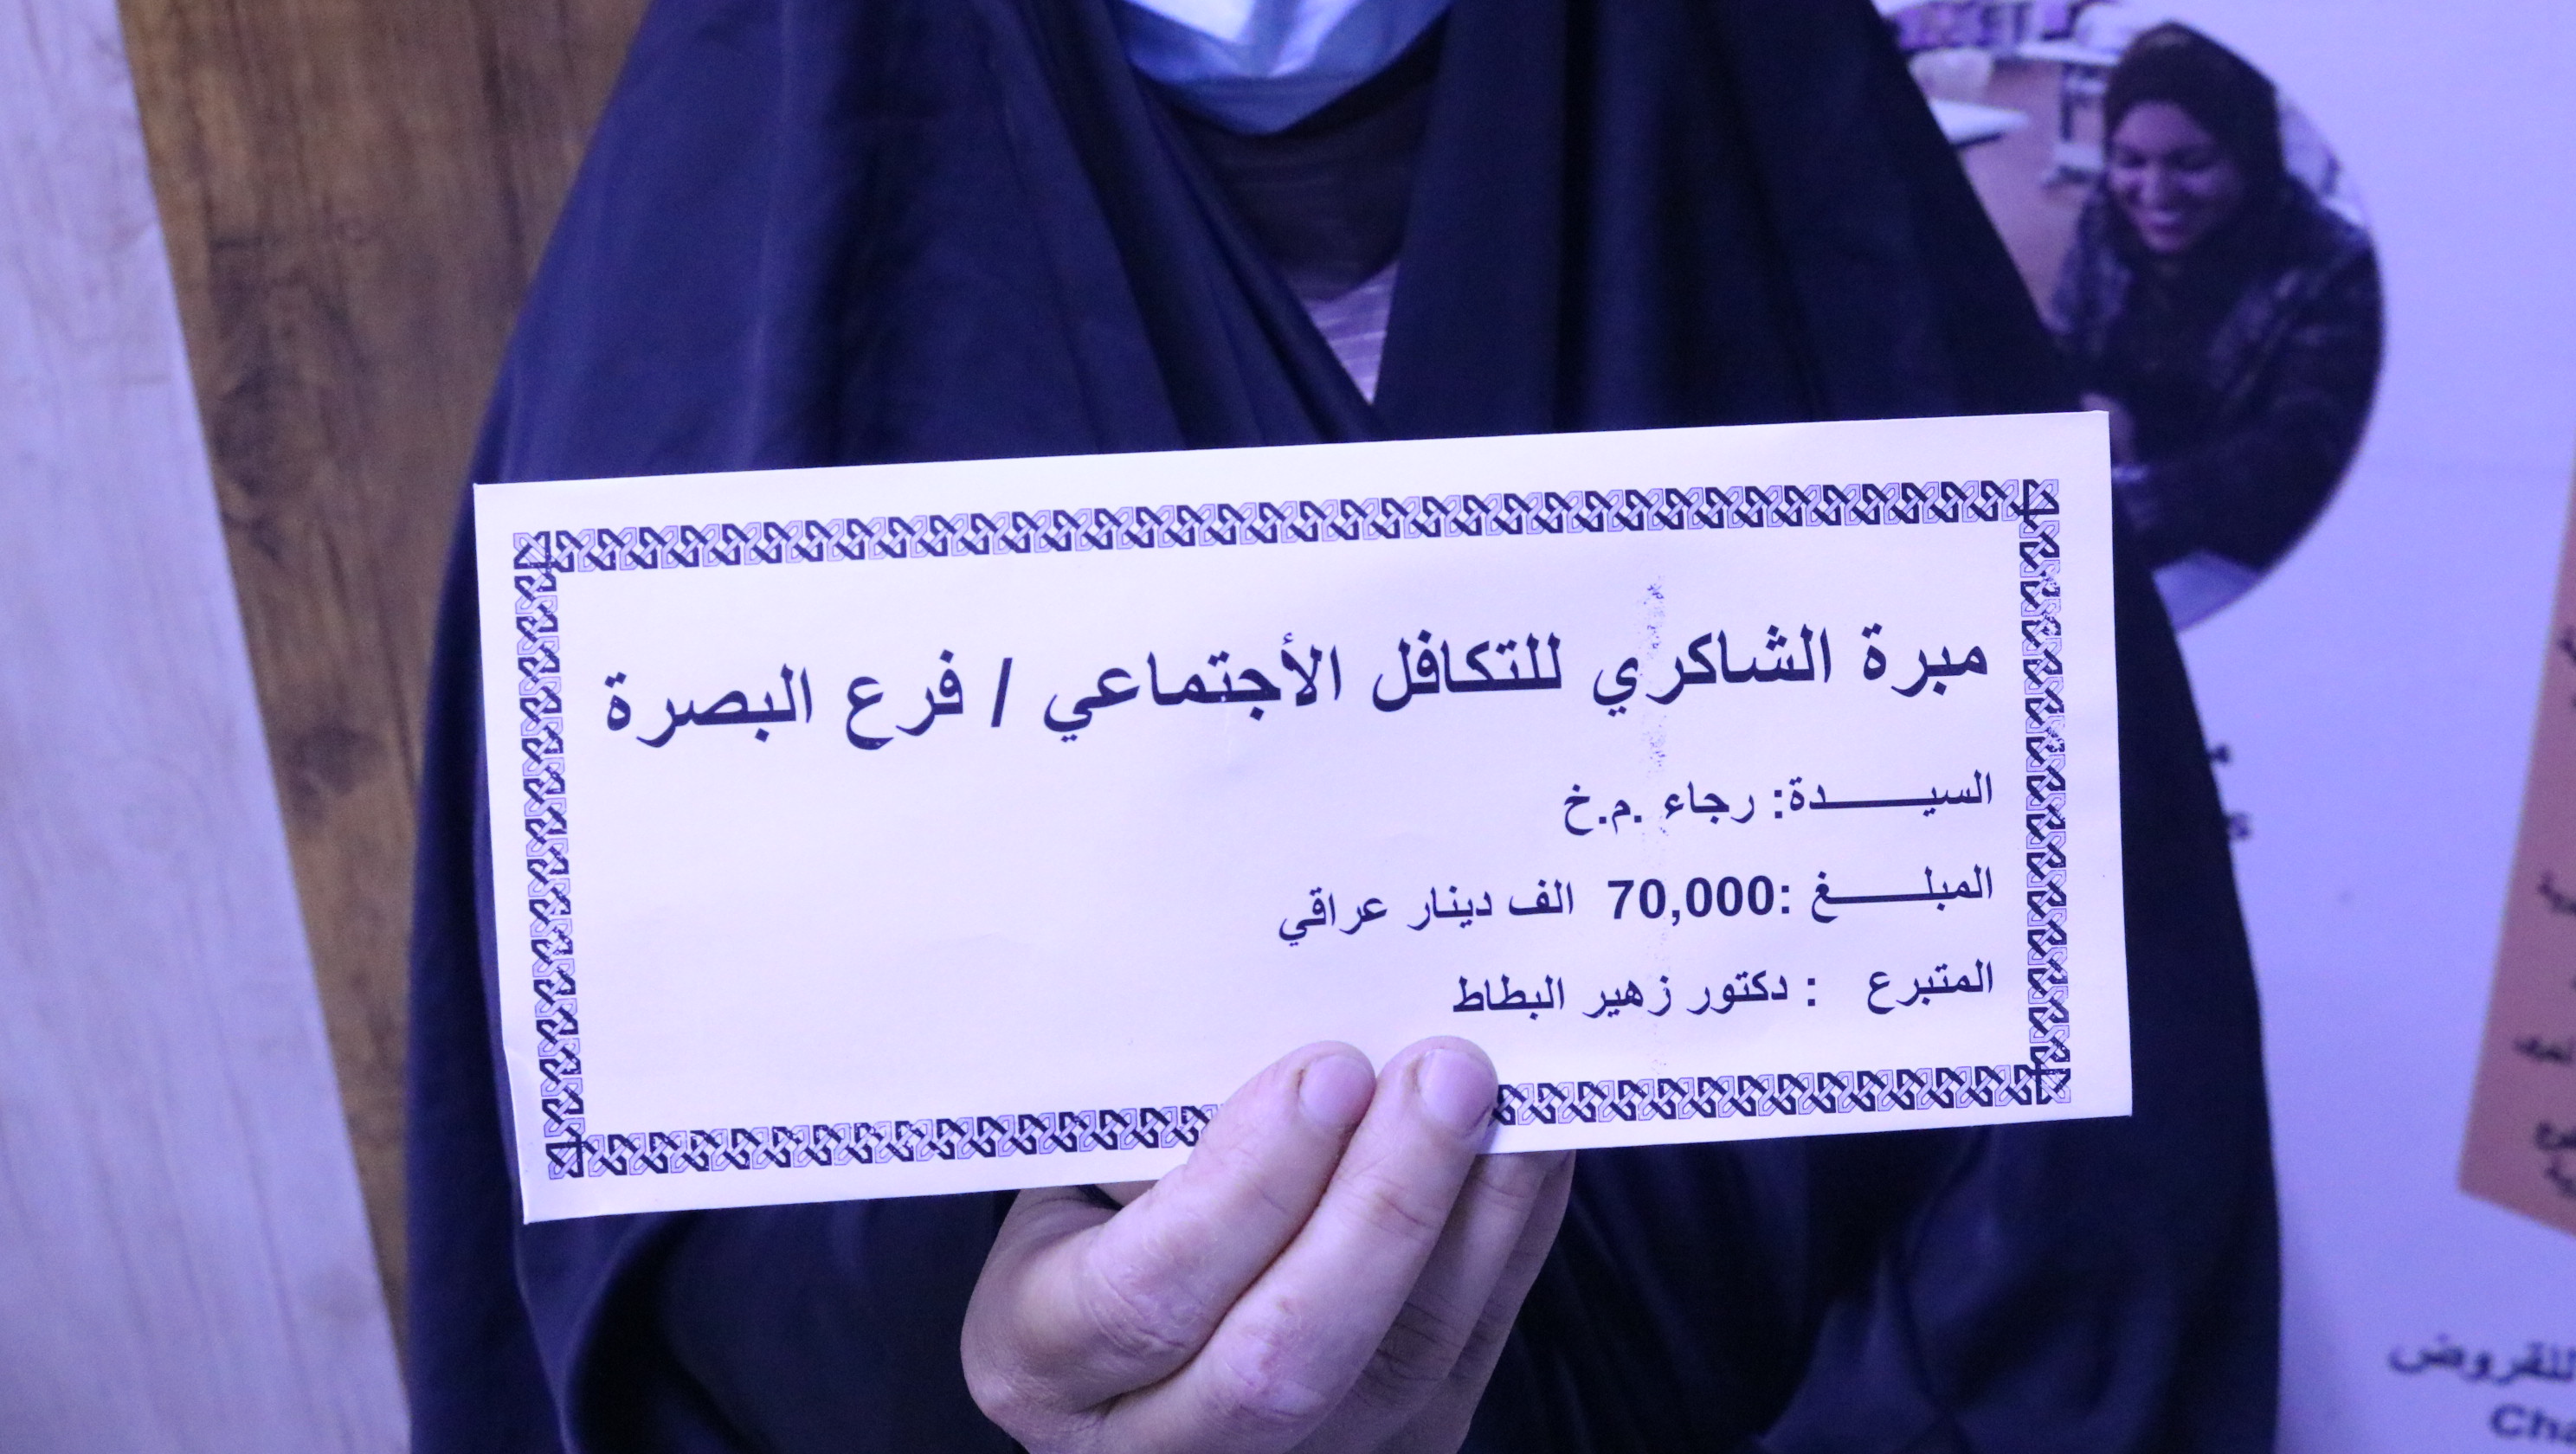 مبرة الشاكري للتكافل الأجتماعي / فرع البصرة
السيـــــــدة: رجاء .م.خ
المبلـــــــغ :70,000 الف دينار عراقي
المتبرع : دكتور زهير البطاط
للقروض